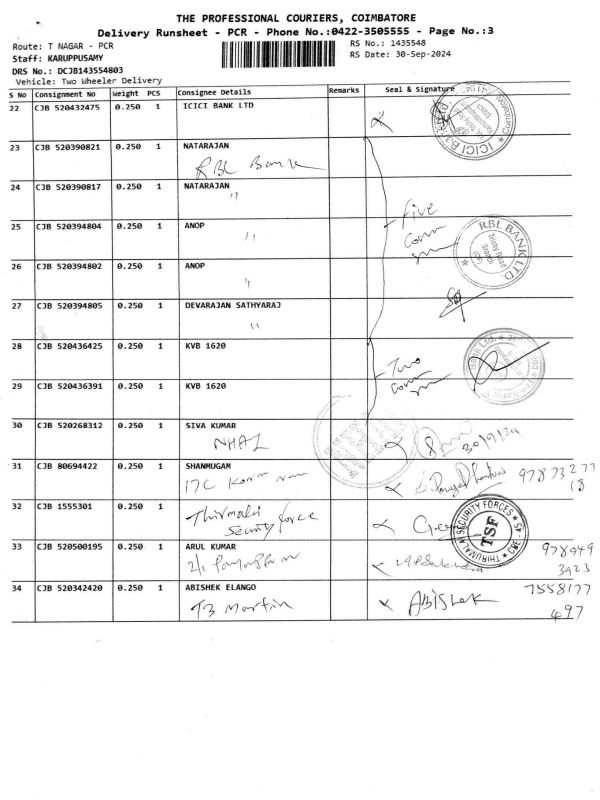 THE PROFESSIONAL COURIERS, COIMBATORE
Delivery Runsheet - PCR - Phone No.:0422-3505555 - Page No.:3
Route: T NAGAR - PCR
RS No.: 1435548
Staff: KARUPPUSAMY
RS Date: 30-Sep-2024
DRS No.: DCJB143554803
Vehicle: Two Wheeler Delivery
S No Consignment No Weight PCS Consignee Details Remarks Seal & Signature
22 CJB 520432475 0.250 1 ICICI BANK LTD
23 CJB 520390821 0.250 1 NATARAJAN
RBL Bank
24 CJB 520390817 0.250 1 NATARAJAN
"
Five
25 CJB 520394804 0.250 1 ANOP
"
RBL BANK LTD
26 CJB 520394802 0.250 1 ANOP
"
27 CJB 520394805 0.250 1 DEVARAJAN SATHYARAJ
"
28 CJB 520436425 0.250 1 KVB 1620
Two
29 CJB 520436391 0.250 1 KVB 1620
30 CJB 520268312 0.250 1 SIVA KUMAR
NHAI
30/9/24
31 CJB 80694422 0.250 1 SHANMUGAM
17C
97873277
18
32 CJB 1555301 0.250 1
Thirmalai
Security force
THIRUMALAI SECURITY FORCES
TSF
CBE-45
33 CJB 520500195 0.250 1 ARUL KUMAR
978949
3923
34 CJB 520342420 0.250 1 ABISHEK ELANGO
TB Martin
ABISHEK
7558177
497